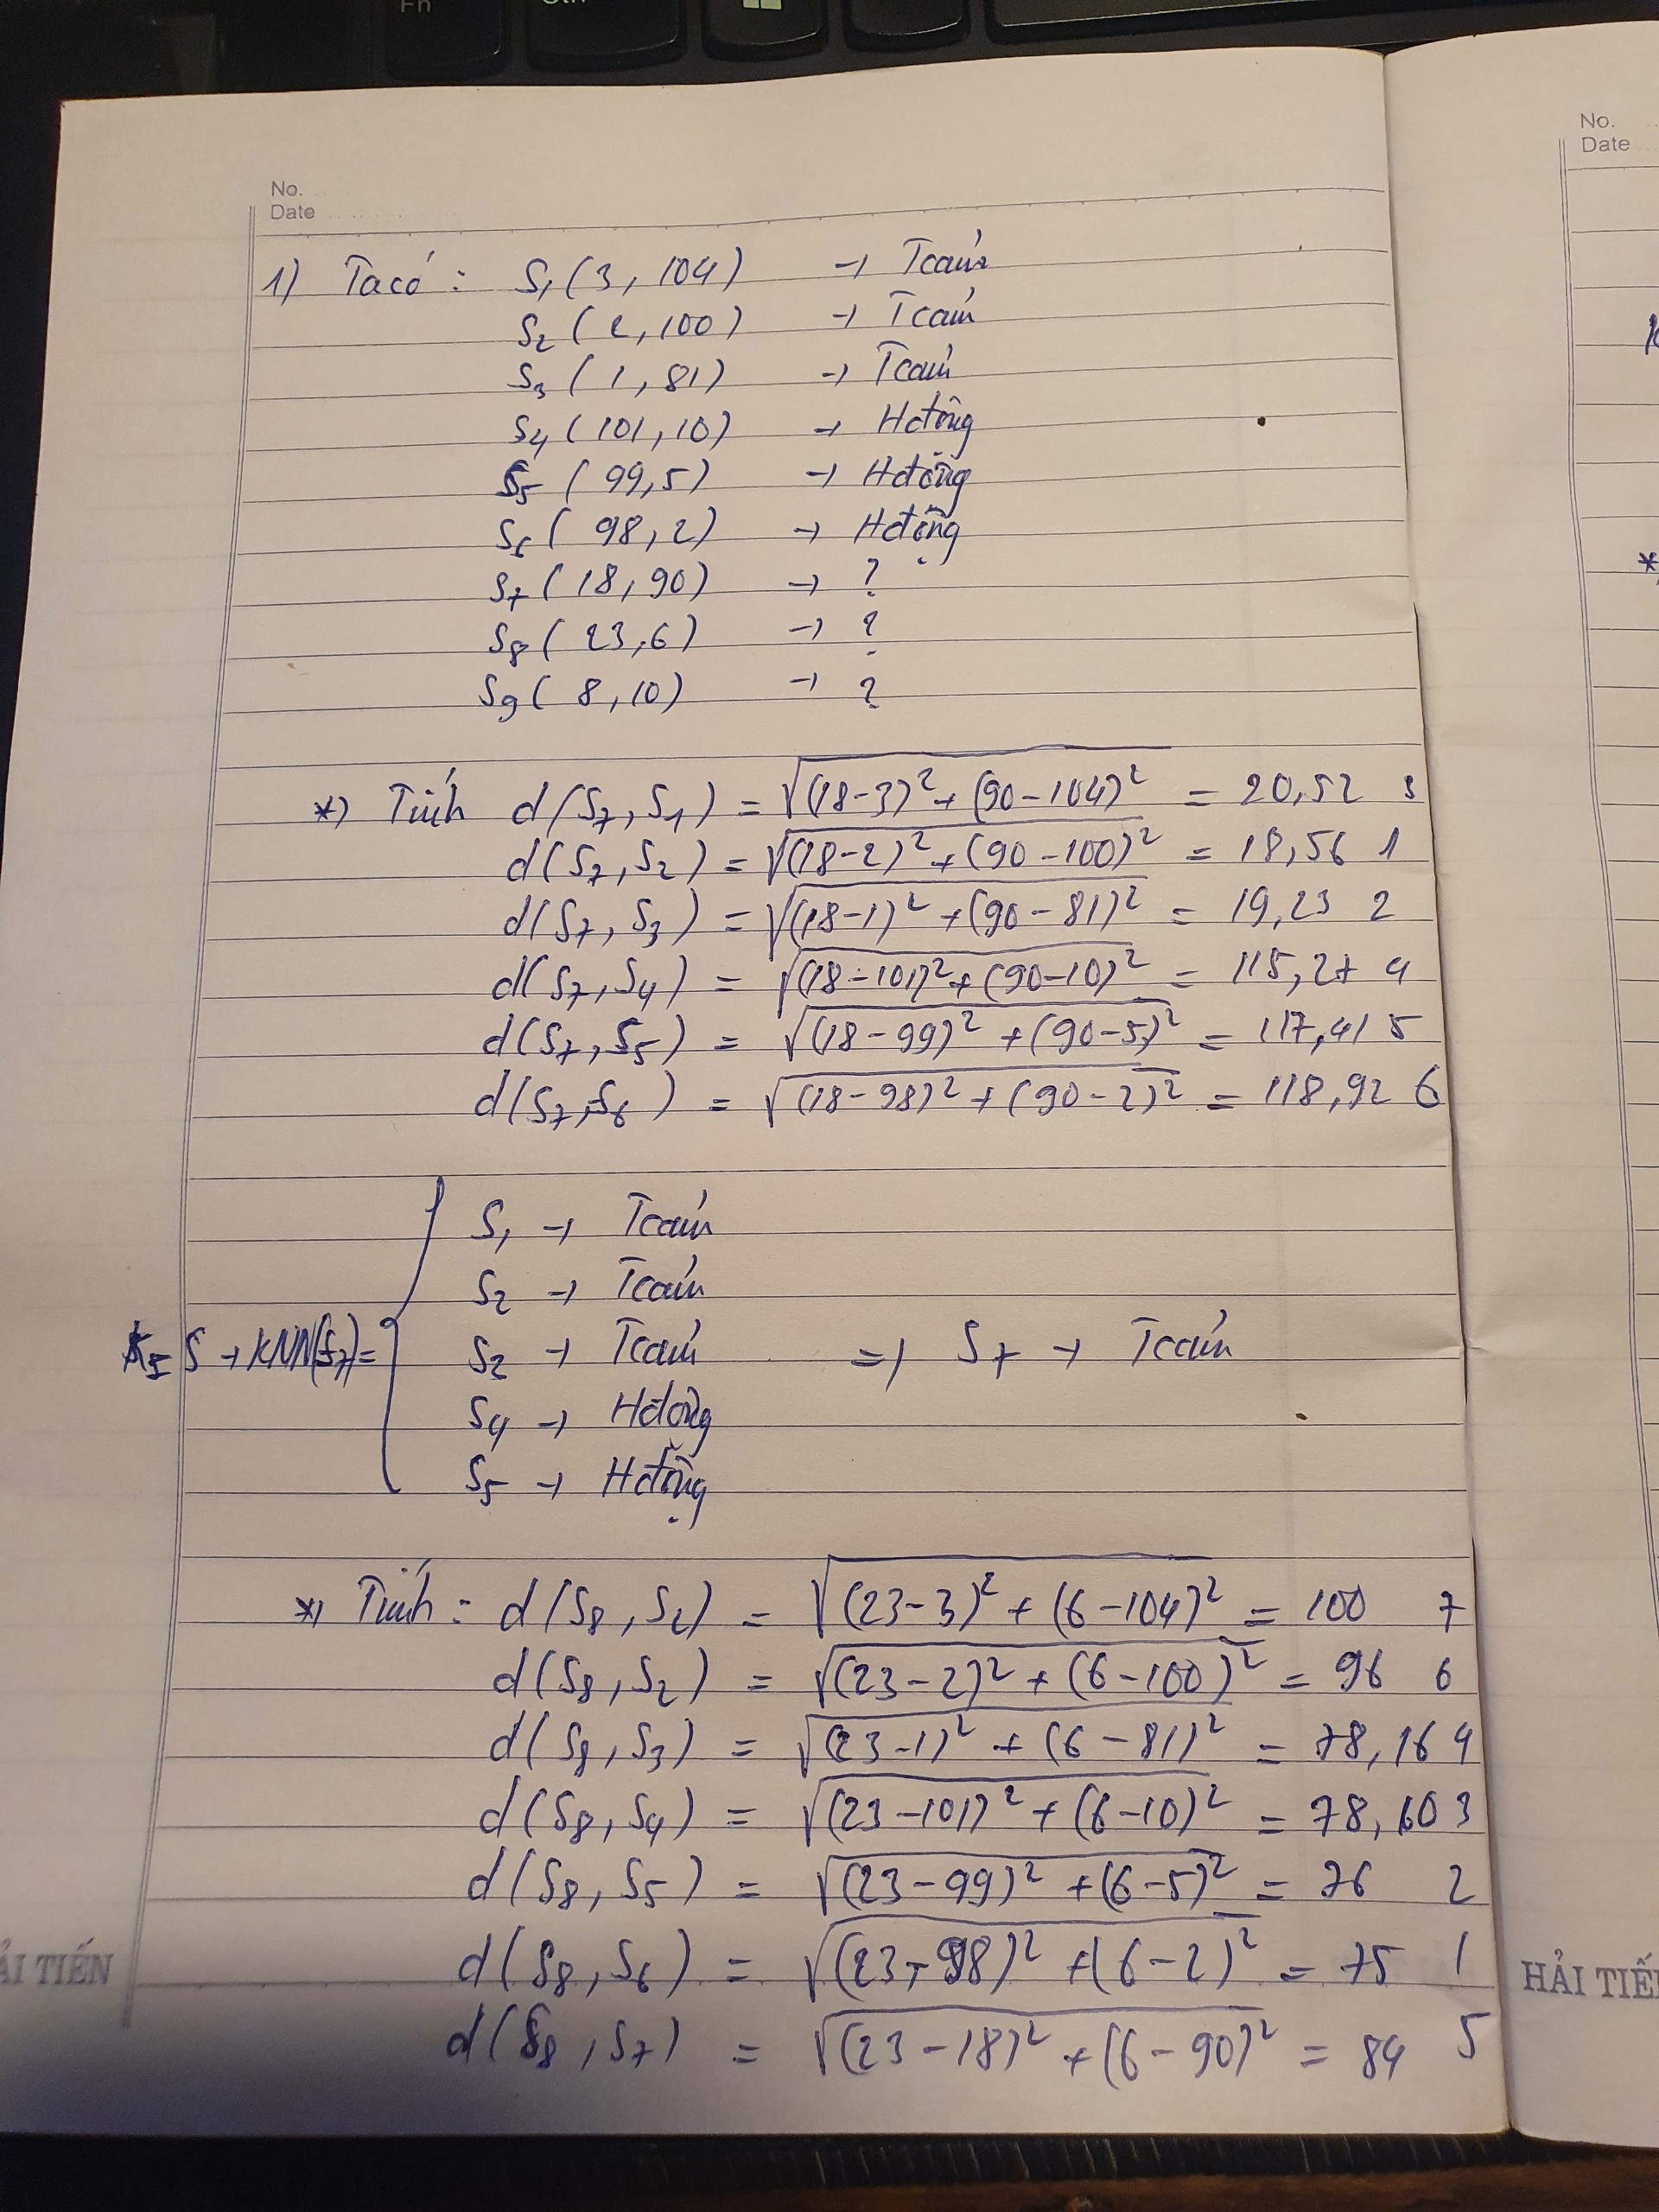 Fn Ctrl
No.
Date
No.
Date
1) Ta có: S₁(3, 104) → Tcảm
S₂(2, 100) → Tcảm
S₃(1, 81) → Tcảm
S₄(101, 10) → Hđộng
S₅(99, 5) → Hđộng
S₆(98, 2) → Hđộng
S₇(18, 90) → ?
S₈(23, 6) → ?
S₉(8, 10) → ?
*) Tính d(S₇, S₁) = √((18-3)² + (90-104)²) = 20,52 3
d(S₇, S₂) = √((18-2)² + (90-100)²) = 18,56 1
d(S₇, S₃) = √((18-1)² + (90-81)²) = 19,23 2
d(S₇, S₄) = √((18-101)² + (90-10)²) = 115,27 4
d(S₇, S₅) = √((18-99)² + (90-5)²) = 117,41 5
d(S₇, S₆) = √((18-98)² + (90-2)²) = 118,92 6
S₁ → Tcảm
S₂ → Tcảm
5 → KNN(S₇) = { S₃ → Tcảm => S₇ → Tcảm
S₄ → Hđộng
S₅ → Hđộng
*) Tính: d(S₈, S₁) = √((23-3)² + (6-104)²) = 100 7
d(S₈, S₂) = √((23-2)² + (6-100)²) = 96 6
d(S₈, S₃) = √((23-1)² + (6-81)²) = 78,16 4
d(S₈, S₄) = √((23-101)² + (6-10)²) = 78,10 3
d(S₈, S₅) = √((23-99)² + (6-5)²) = 76 2
d(S₈, S₆) = √((23-98)² + (6-2)²) = 75 1
d(S₈, S₇) = √((23-18)² + (6-90)²) = 84 5
ẢI TIẾN
HẢI TIẾ